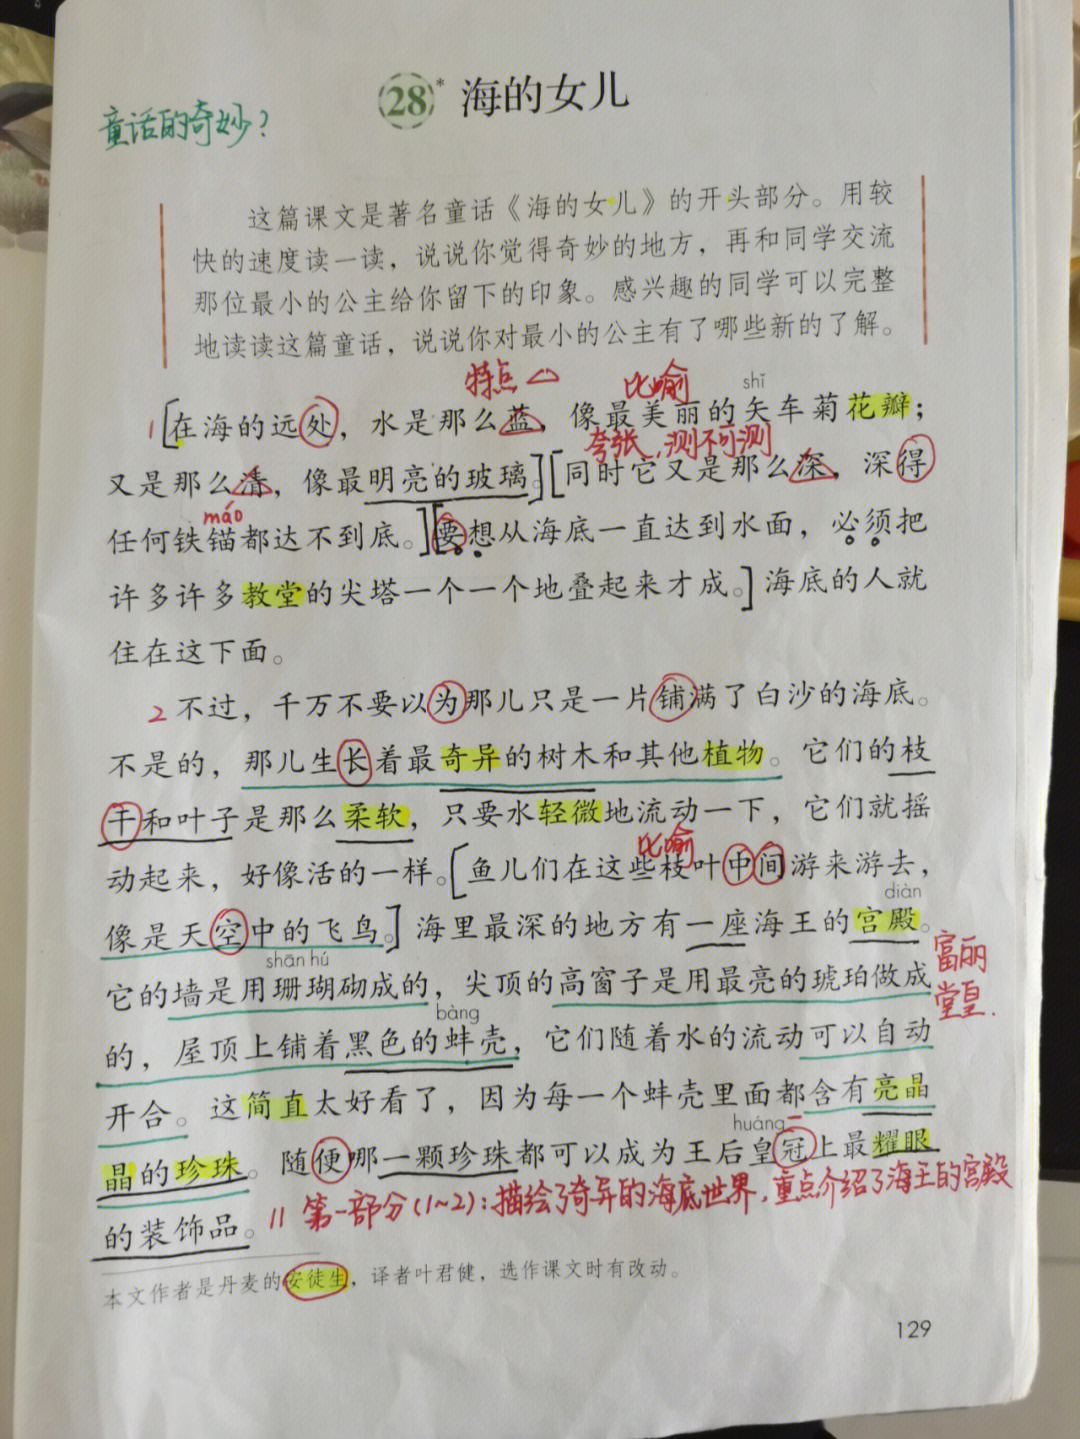 28* 海的女儿
童话的奇妙?
这篇课文是著名童话《海的女儿》的开头部分。用较
快的速度读一读，说说你觉得奇妙的地方，再和同学交流
那位最小的公主给你留下的印象。感兴趣的同学可以完整
地读读这篇童话，说说你对最小的公主有了哪些新的了解。
特点△ 比喻 shǐ
1[在海的远处，水是那么蓝，像最美丽的矢车菊花瓣；
夸张,测不可测
又是那么清，像最明亮的玻璃。][同时它又是那么深，深得
máo
任何铁锚都达不到底。][要想从海底一直达到水面，必须把
许多许多教堂的尖塔一个一个地叠起来才成。]海底的人就
住在这下面。
2 不过，千万不要以为那儿只是一片铺满了白沙的海底。
不是的，那儿生长着最奇异的树木和其他植物。它们的枝
干和叶子是那么柔软，只要水轻微地流动一下，它们就摇
比喻
动起来，好像活的一样。[鱼儿们在这些枝叶中间游来游去，
diàn
像是天空中的飞鸟。]海里最深的地方有一座海王的宫殿。
shān hú
富丽
它的墙是用珊瑚砌成的，尖顶的高窗子是用最亮的琥珀做成
堂皇.
bàng
的，屋顶上铺着黑色的蚌壳，它们随着水的流动可以自动
开合。这简直太好看了，因为每一个蚌壳里面都含有亮晶
huáng
晶的珍珠。随便哪一颗珍珠都可以成为王后皇冠上最耀眼
的装饰品。// 第一部分(1~2):描绘了奇异的海底世界,重点介绍了海王的宫殿
本文作者是丹麦的安徒生，译者叶君健，选作课文时有改动。
129